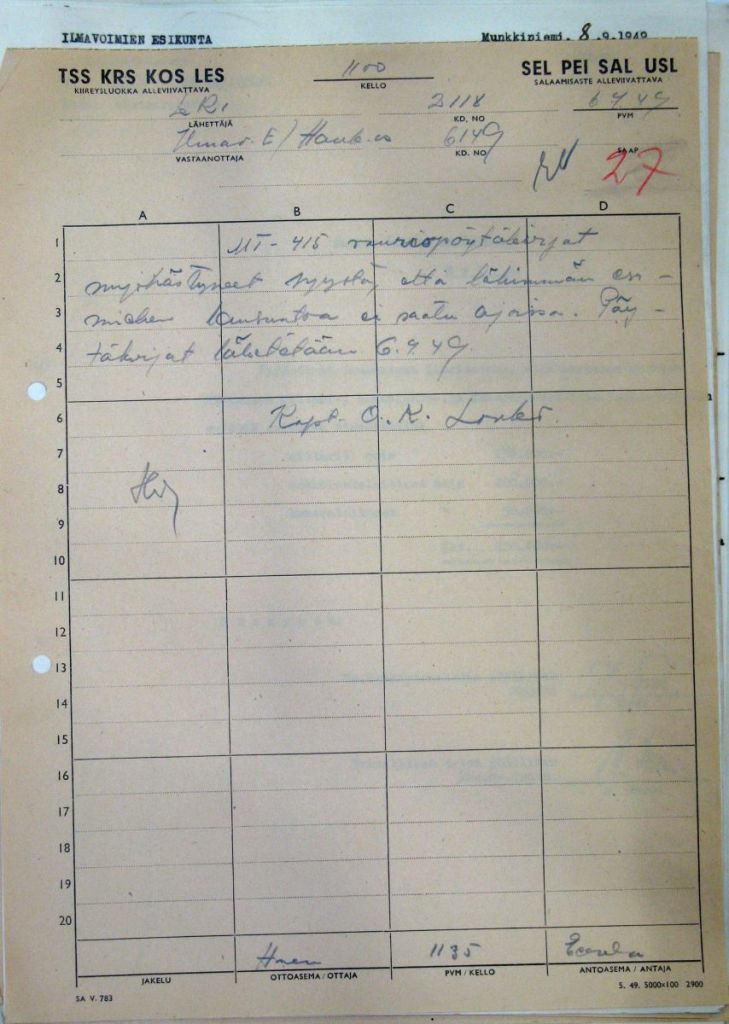 ILMAVOIMIEN ESIKUNTA Munkkiniemi. 8 .9.1949
TSS KRS KOS LES 1100 SEL PEI SAL USL
KIIREYSLUOKKA ALLEVIIVATTAVA KELLO SALAAMISASTE ALLEVIIVATTAVA
LeR1 2118 6 9 49
LÄHETTÄJÄ KD. NO PVM
Ilmav. E / Hank.os 6149
VASTAANOTTAJA KD. NO SAAP
27
A B C D
1 MT-415 vauriopöytäkirjat
2 myöhästyneet syystä, että lähimmän esi-
3 miehen lausuntoa ei saatu ajoissa. Pöy-
4 täkirjat lähetetään 6.9.49
5
6 Kapt. O. K.
7
8
9
10
11
12
13
14
15
16
17
18
19
20
1135
JAKELU OTTOASEMA / OTTAJA PVM / KELLO ANTOASEMA / ANTAJA
SA V. 783 5. 49. 5000×100 2900